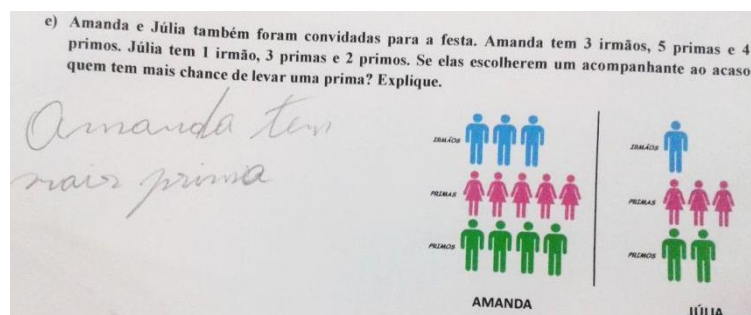 e) Amanda e Júlia também foram convidadas para a festa. Amanda tem 3 irmãos, 5 primas e 4
primos. Júlia tem 1 irmão, 3 primas e 2 primos. Se elas escolherem um acompanhante ao acaso
quem tem mais chance de levar uma prima? Explique.
Amanda tem
mais prima
IRMÃOS
PRIMAS
PRIMOS
AMANDA
IRMÃOS
PRIMAS
PRIMOS
JÚLIA